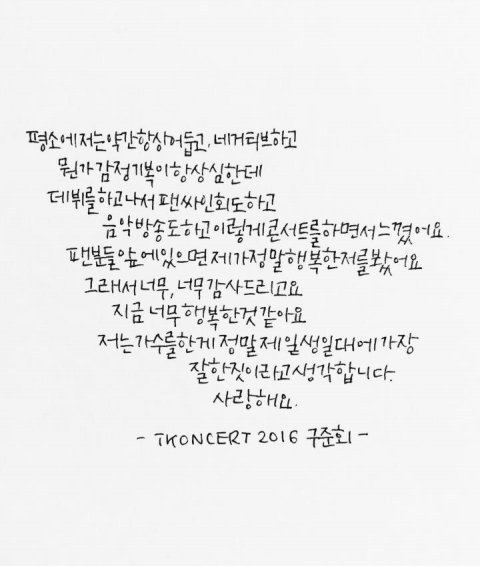 평소에 저는 약간 항상 어둡고, 네거티브하고
뭔가 감정기복이 항상 심한데
데뷔를 하고나서 팬싸인회도 하고
음악방송도 하고 이렇게 콘서트를 하면서 느꼈어요.
팬분들 앞에 있으면 제가 정말 행복한 저를 봤어요
그래서 너무, 너무 감사드리고요
지금 너무 행복한 것 같아요
저는 가수를 한게 정말 제 일생일대에 가장
잘한 짓이라고 생각합니다.
사랑해요.
- IKONCERT 2016 구준회 -